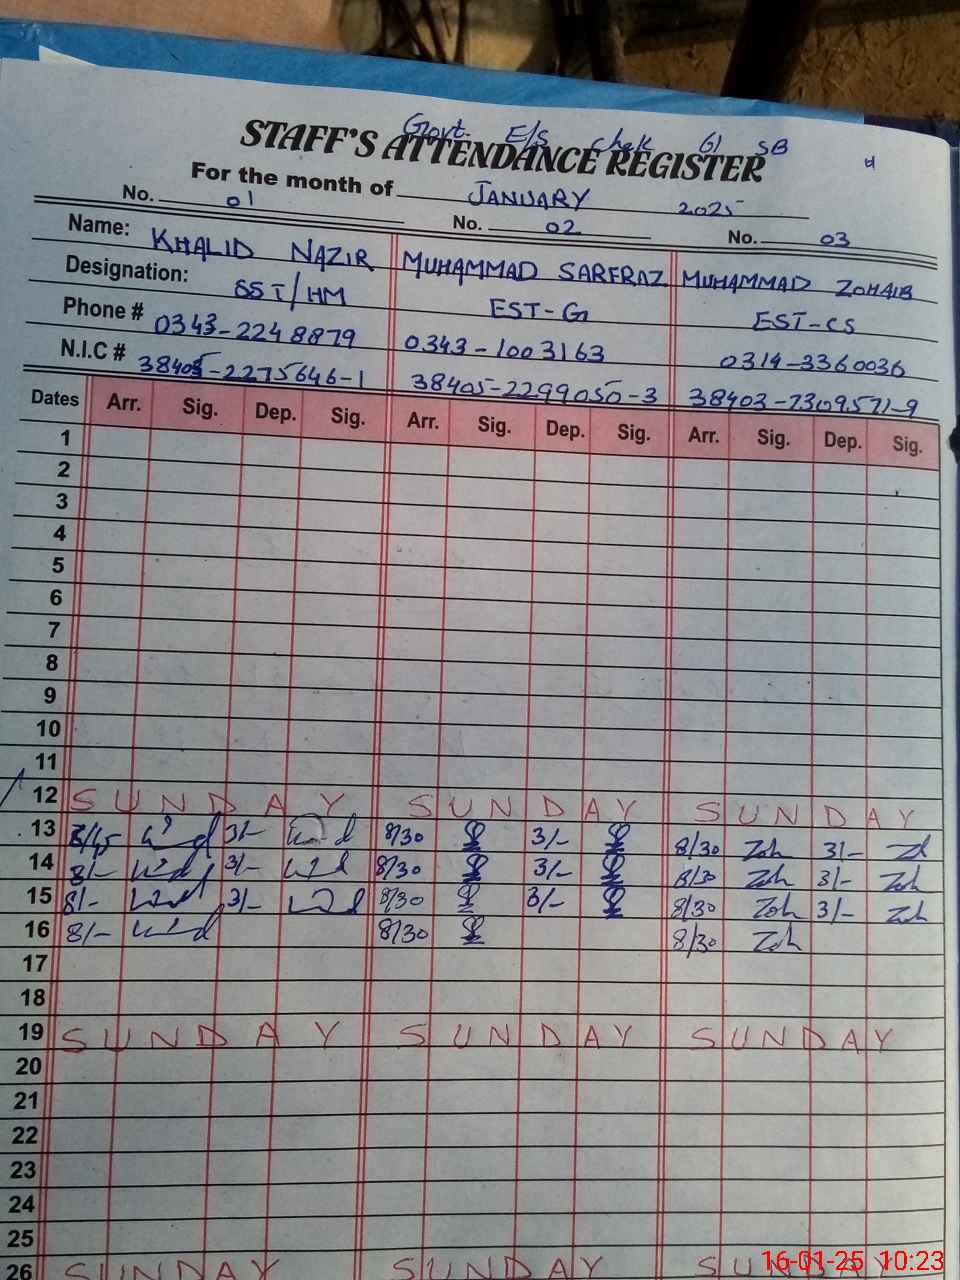 Govt. E/S chak 61 SB
STAFF'S ATTENDANCE REGISTER
For the month of JANUARY 2025
No. 01 No. 02 No. 03
Name: KHALID NAZIR MUHAMMAD SARFRAZ MUHAMMAD ZOHAIB
Designation: SST/HM EST-G EST-CS
Phone # 0343-2248879 0343-1003163 0314-3360036
N.I.C # 38405-2275646-1 38405-2299050-3 38403-7309571-9
Dates Arr. Sig. Dep. Sig. Arr. Sig. Dep. Sig. Arr. Sig. Dep. Sig.
1
2
3
4
5
6
7
8
9
10
11
12 SUNDAY SUNDAY SUNDAY
13 8/45 3/- 8/30 3/- 8/30 Zoh 3/-
14 8/- 3/- 8/30 3/- 8/30 Zoh 3/- Zoh
15 8/- 3/- 8/30 3/- 8/30 Zoh 3/- Zoh
16 8/- 8/30 8/30 Zoh
17
18
19 SUNDAY SUNDAY SUNDAY
20
21
22
23
24
25
26 SUNDAY SUNDAY SUNDAY
16-01-25 10:23